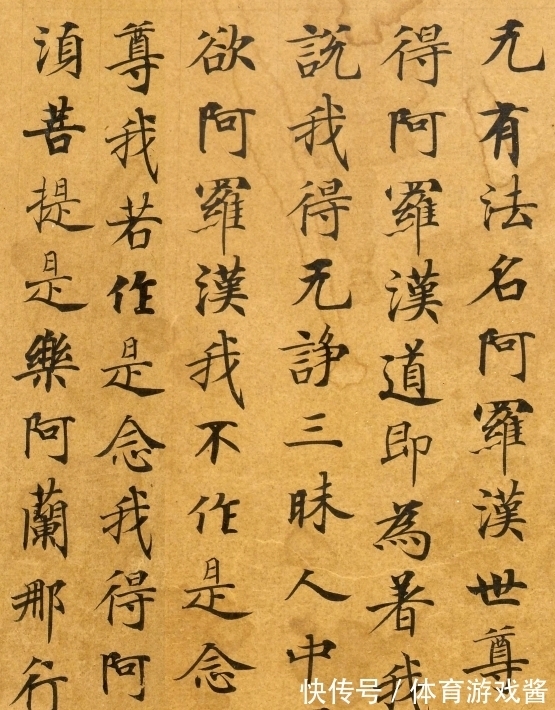 无有法名阿羅漢世尊
得阿羅漢道即為著我
說我得无諍三昧人中
欲阿羅漢我不作是念
尊我若作是念我得阿
須菩提是樂阿蘭那行
快传号 / 体育游戏酱